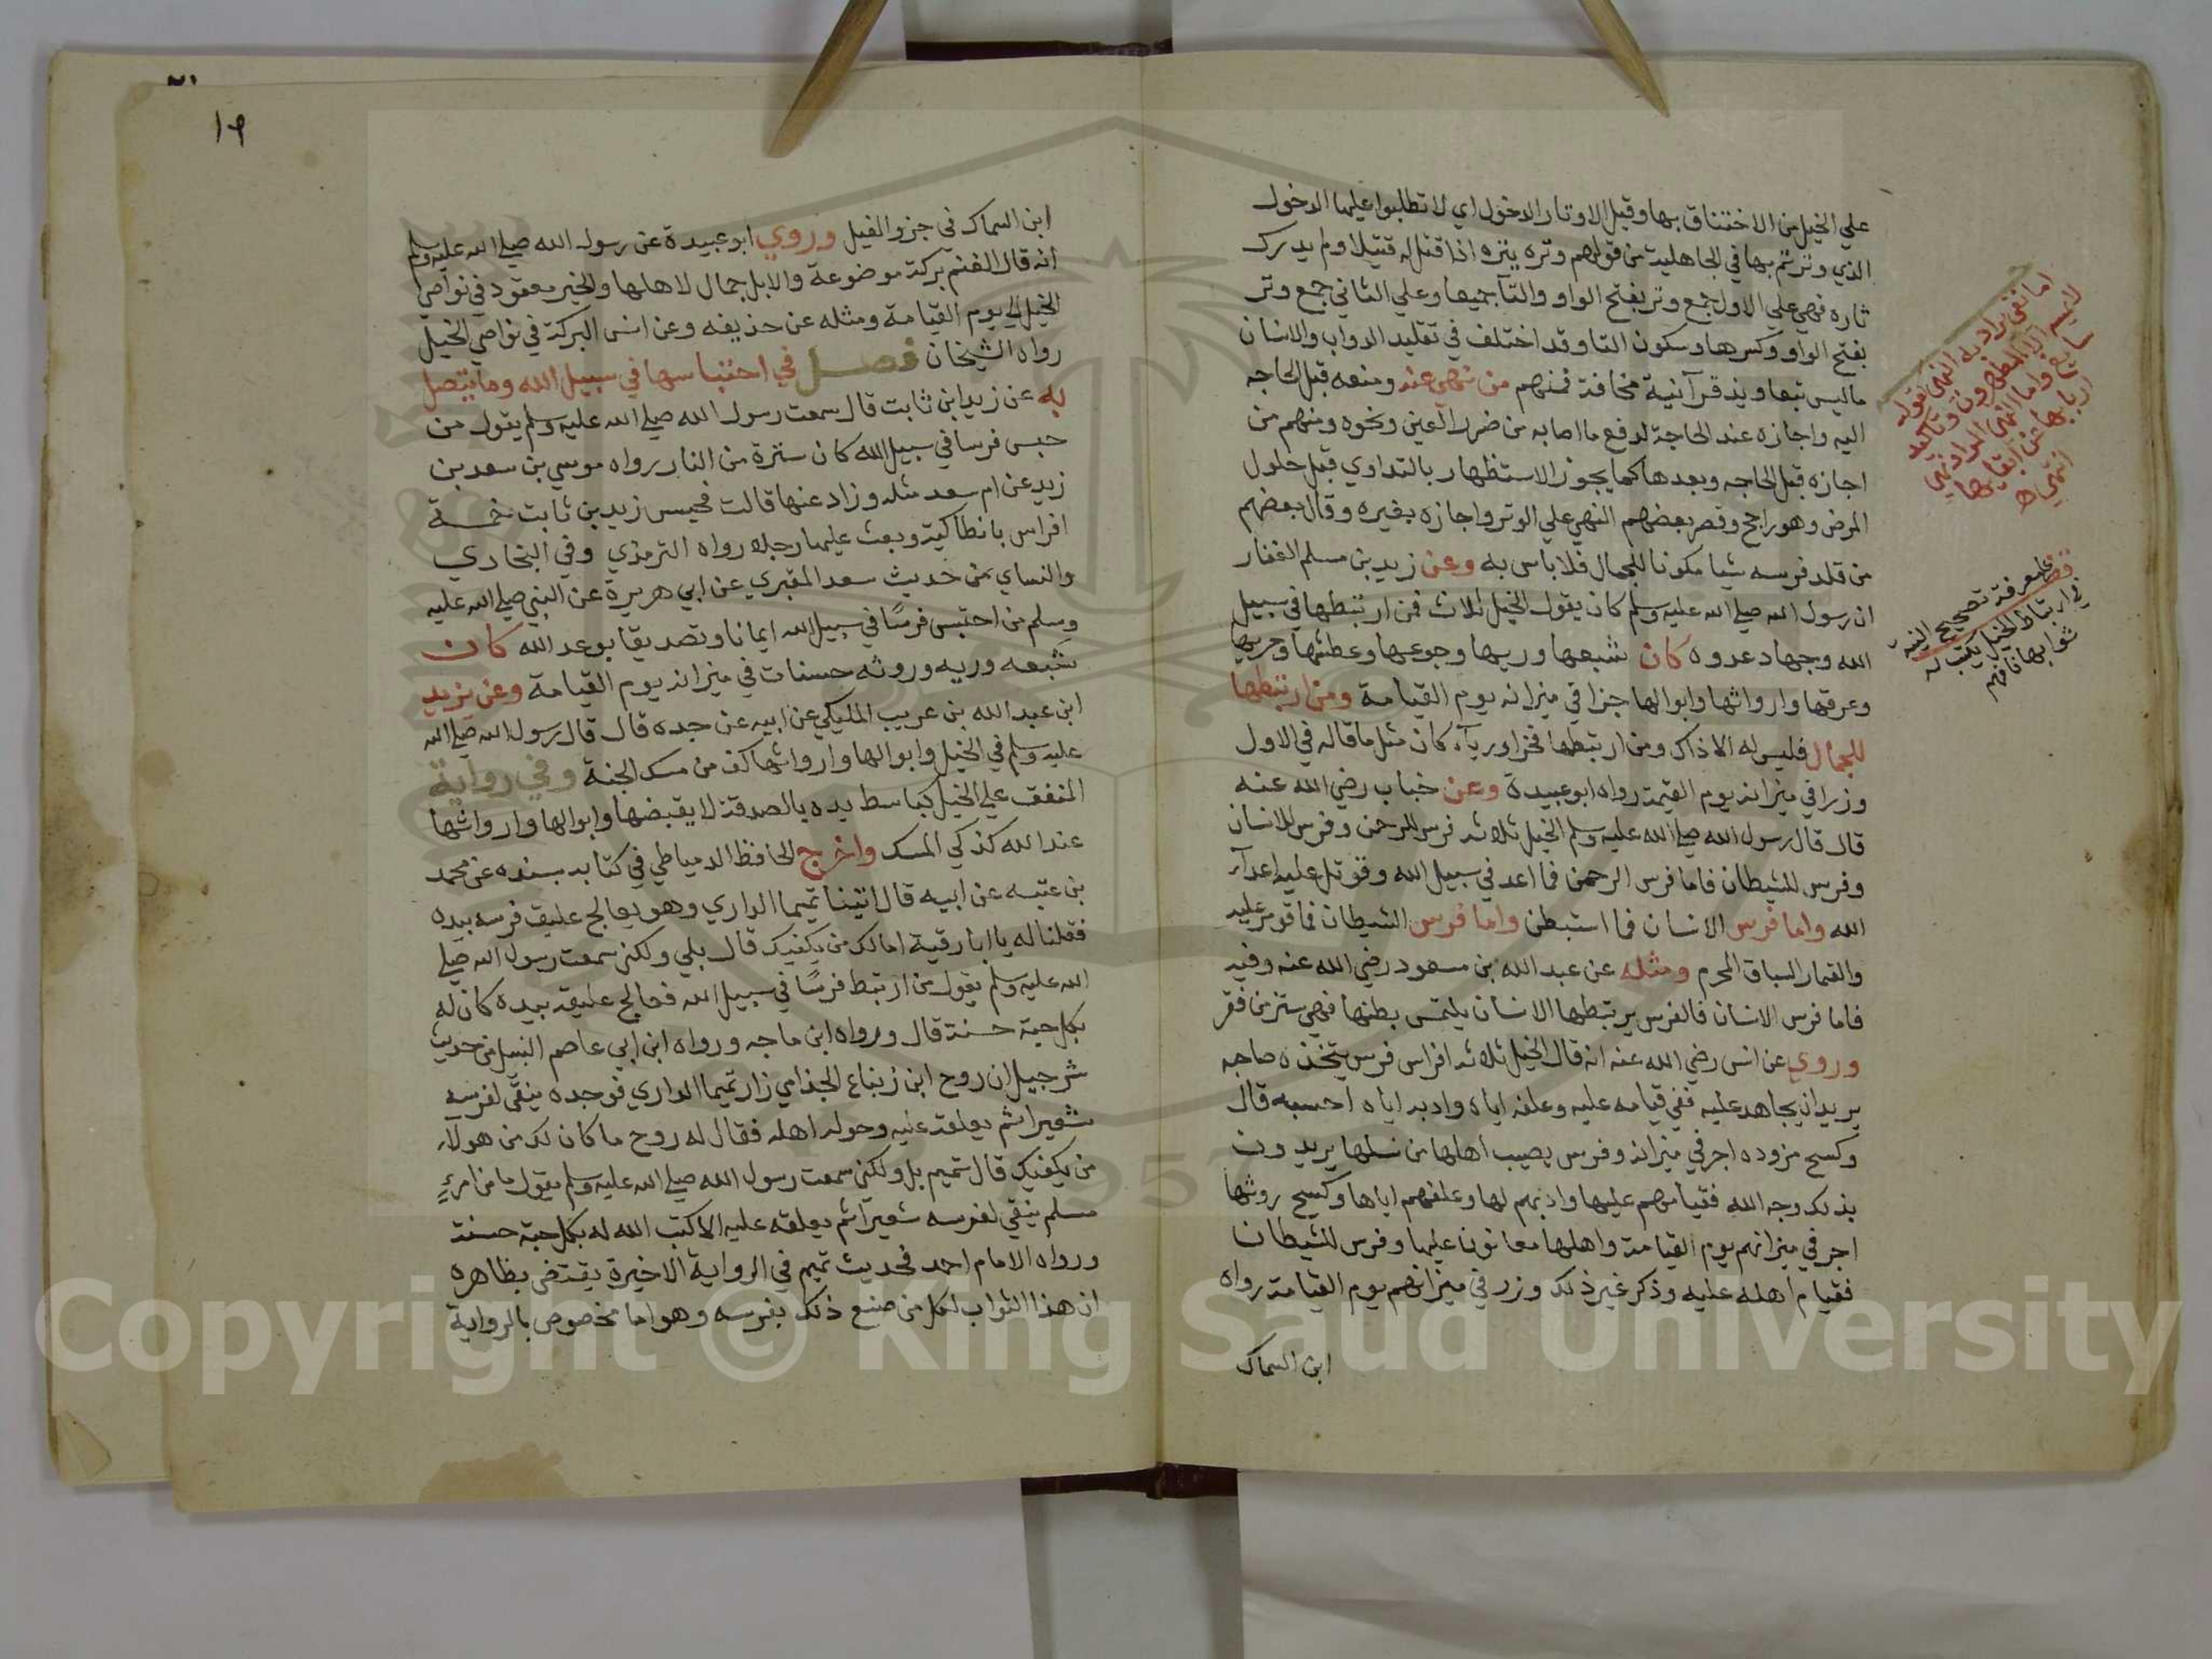 علي الخيل من الاختناق بها وقيل الاوتار الدخول اي لا تطلبوا عليها الدخول
الذي وترتم بها في الجاهلية من قولهم وتره يتره اذا قتل له قتيلا ولم يدرك
ثاره فهي علي الاول جمع وتر بفتح الواو والتآ جميعا وعلي الثاني جمع وتر
بفتح الواو وكسرها وسكون التا وقد اختلف في تقليد الدواب والانسان
ماليس بتعاويذ قرآنية مخافة فمنهم من نهي عنه ومنعه قبل الحاجه
اليه واجازه عند الحاجة لدفع ما اصابه من ضرر العين ونحوه ومنهم من
اجازه قبل الحاجه وبعدها كما يجوز الاستظهار بالتداوي قبل حلول
المرض وهو راجح وقصر بعضهم النهي علي الوتر واجازه بغيره وقال بعضهم
من قلد فرسه شيا مكونا للجمال فلا باس به وعن زيد بن مسلم الغفار
ان رسول الله صلي الله عليه وسلم كان يقول الخيل ثلاث فمن ارتبطها في سبيل
الله وجهاد عدوه كان شبعها وريها وجوعها وعطشها وجريها
وعرقها وارواثها وابوالها جزا في ميزانه يوم القيامة ومن ارتبطها
للجمال فليس له الا ذاك ومن ارتبطها فخرا ورياء كان مثل ما قاله في الاول
وزرا في ميزانه يوم القيمة رواه ابوعبيدة وعن خباب رضي الله عنه
قال قال رسول الله صلي الله عليه وسلم الخيل ثلاثه فرس للرحمن وفرس للانسان
وفرس للشيطان فاما فرس الرحمن فما اعد في سبيل الله وقوتل عليه اعدآء
الله واما فرس الانسان فما استبطن واما فرس الشيطان فما قومر عليه
والقمار السباق المحرم ومثله عن عبد الله بن مسعود رضي الله عنه وفيه
فاما فرس الانسان فالفرس يرتبطها الانسان يلتمس بطنها فهي ستر من فقر
وروي عن انس رضي الله عنه انه قال الخيل ثلاثه افراس فرس يتخذه صاحبه
يريد ان يجاهد عليه ففي قيامه عليه وعلفه اياه وادبه اياه احسبه قال
وكسح مزوده اجر في ميزانه وفرس يصيب اهلها من نسلها يريدون
بذلك وجه الله فقيامهم عليها وادبهم لها وعلفهم اياها وكسح روثها
اجر في ميزانهم يوم القيامة واهلها معانون عليها وفرس للشيطان
فقيام اهله عليه وذكر غير ذلك وزر في ميزانهم يوم القيامة رواه
ابن السماك
قف علي معرفة تصحيح النية
في ارتباط الخيل يكتب له
ثوابها فافهم
١٩
ابن السماك في جزو الفيل وروي ابو عبيدة عن رسول الله صلي الله عليه وسلم
انه قال الغنم بركة موضوعة والابل جمال لاهلها والخير معقود في نواصي
الخيل الي يوم القيامة ومثله عن حذيفه وعن انس البركة في نواصي الخيل
رواه الشيخان فصل في احتباسها في سبيل الله وما يتصل
به عن زيد ابن ثابت قال سمعت رسول الله صلي الله عليه وسلم يقول من
حبس فرسا في سبيل الله كان سترة من النار رواه موسي بن سعد بن
زيد عن ام سعد مثله وزاد عنها قالت فحبس زيد بن ثابت خمسة
افراس بانطاكية وبعث عليها رجلا رواه الترمذي وفي البخاري
والنساي من حديث سعد المقبري عن ابي هريرة عن النبي صلي الله عليه
وسلم من احتبس فرسًا في سبيل الله ايمانا وتصديقا بوعد الله كان
شبعه وريه وروثه حسنات في ميزانه يوم القيامة وعن يزيد
ابن عبد الله بن عريب المليكي عن ابيه عن جده قال قال رسول الله صلي الله
عليه وسلم في الخيل وابوالها وارواثها كف من مسك الجنة وفي رواية
المنفق علي الخيل كباسط يده بالصدقة لا يقبضها وابوالها وارواثها
عند الله كذكي المسك واخرج الحافظ الدمياطي في كتابه بسنده عن محمد
بن عتبه عن ابيه قال اتينا تميما الداري وهو يعالج عليق فرسه بيده
فقلنا له يا ابا رقية امالك من يكفيك قال بلي ولكني سمعت رسول الله صلي
الله عليه وسلم يقول من ارتبط فرسًا في سبيل الله فعالج عليقه بيده كان له
بكل حبة حسنة قال ورواه ابن ماجه ورواه ابن ابي عاصم النبيل من حديث
شرحبيل ان روح ابن زنباع الجذامي زار تميما الداري فوجده ينقّي لفرسه
شعيرا ثم يعلقه عليه وحوله اهله فقال له روح ما كان لك من هولاء
من يكفيك قال تميم بل ولكني سمعت رسول الله صلي الله عليه وسلم يقول ما من امرءٍ
مسلم ينقي لفرسه شعيرا ثم يعلقه عليه الا كتب الله له بكل حبة حسنة
ورواه الامام احمد فحديث تميم في الرواية الاخيرة يقتضي بظاهره
ان هذا الثواب لكل من صنع ذلك بفرسه وهو اما مخصوص بالرواية
Copyright © King Saud University